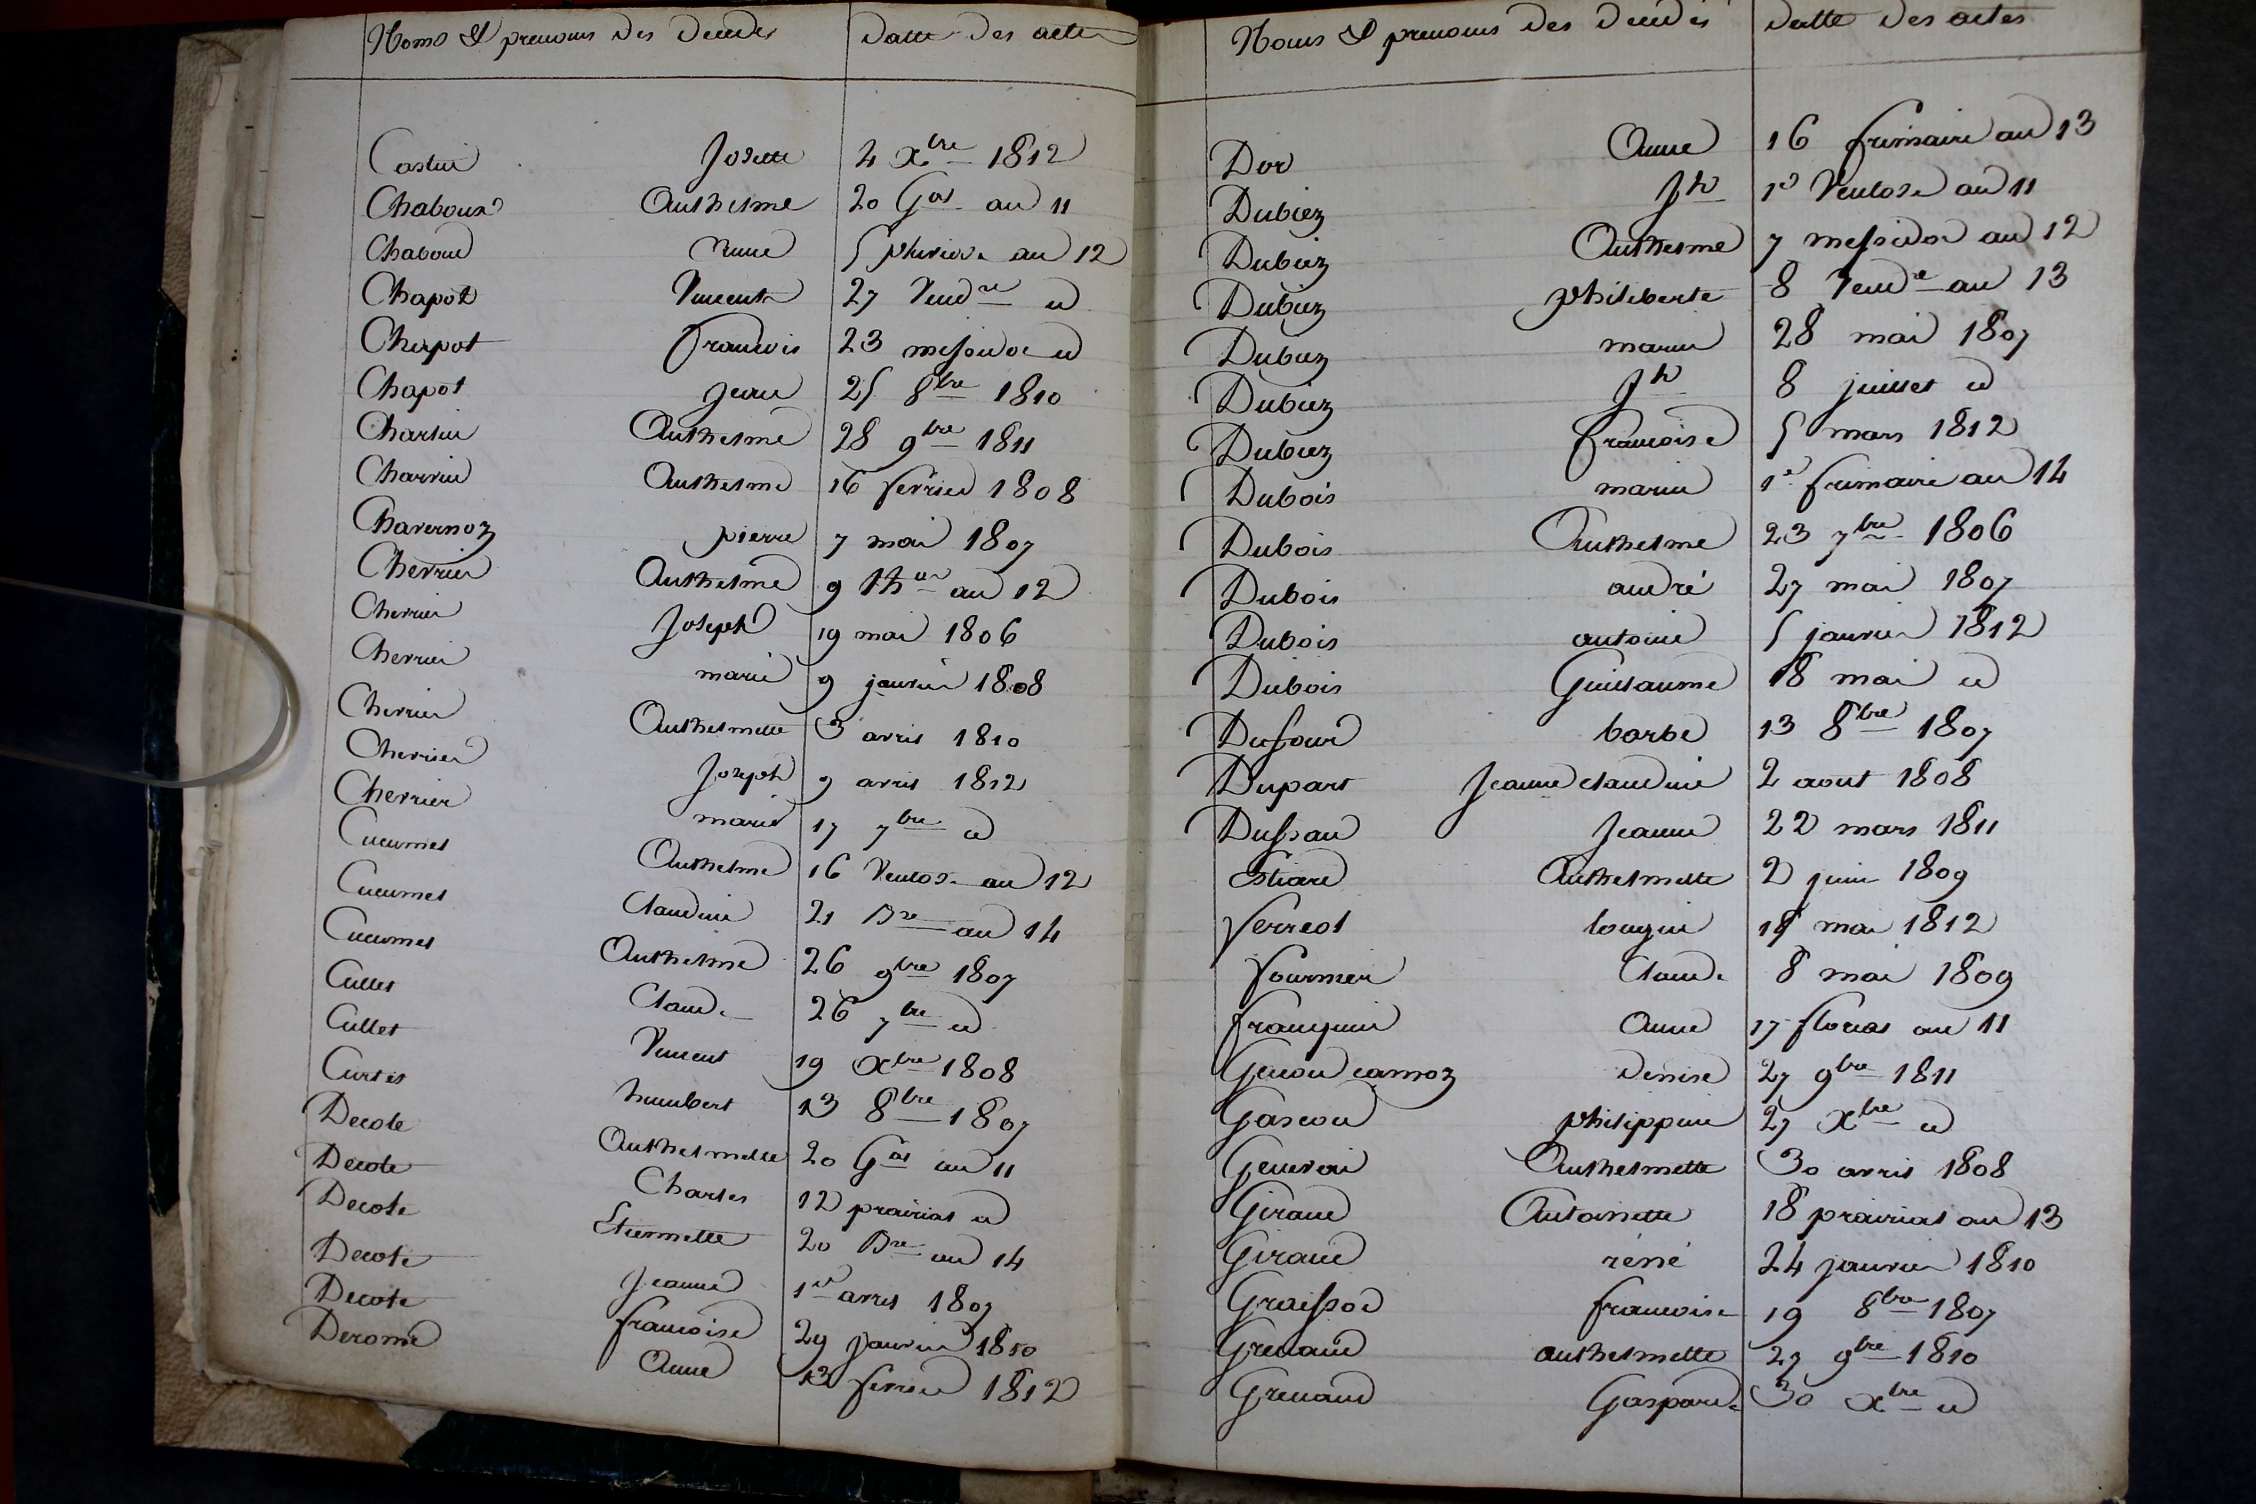 Noms & prenoms des Decedes Datte des actes
Castin Josette 4 Xbre 1812
Chaboud Anthelme 20 Gal an 11
Chaboud Anne 5 pluviose an 12
Chapot Vincent 27 Vendre id
Chapot francois 23 messidor id
Chapot jean 25 8bre 1810
Charlin Anthelme 28 9bre 1811
Charvin Anthelme 16 fevrier 1808
Chavernoz pierre 7 mai 1807
Cherrier Anthelme 9 th.or an 12
Cherrier Joseph 19 mai 1806
Cherrier marie 9 janvier 1808
Cherrier Anthelmette 3 avril 1810
Cherrier Joseph 9 avril 1812
Cherrier marie 17 7bre id
Cucumel Anthelme 16 Ventose an 12
Cucumel Claudine 21 Bre an 14
Cucumel Anthelme 26 9bre 1807
Cullet Claude 26 7bre id
Cullet Vincent 19 Xbre 1808
Curtet humbert 13 8bre 1807
Decote Anthelmette 20 Gal an 11
Decote Charles 12 prairial id
Decote Etiennette 20 Bre an 14
Decote Jeanne 1er avril 1807
Decote francoise 29 janvier 1810
Derome Anne 13 fevrier 1812
Noms & prenoms des Decedés Datte des actes
Dor Anne 16 frimaire an 13
Dubiez Jh 1er Ventose an 11
Dubiez Anthelme 7 messidor an 12
Dubiez philiberte 8 Vendre an 13
Dubiez marie 28 mai 1807
Dubiez Jh 8 juillet id
Dubiez francoise 5 mars 1812
Dubois marie 1er frimaire an 14
Dubois Anthelme 23 7bre 1806
Dubois andré 27 mai 1807
Dubois antoine 5 janvier 1812
Dubois Guillaume 18 mai id
Dufour barbe 13 8bre 1807
Dupart Jeanne claudine 2 aout 1808
Dussau Jeanne 22 mars 1811
Estiard Anthelmette 2 juin 1809
ferreol longin 18 mai 1812
fournier Claude 8 mai 1809
franquin Anne 17 floreal an 11
carnoz Denise 27 9bre 1811
Gascon philippine 27 Xbre id
Genevai Anthelmette 30 avril 1808
Giraud Antoinette 18 prairial an 13
Giraud réné 24 janvier 1810
Graissod francoise 19 8bre 1807
Grenaud anthelmette 27 9bre 1810
Grenaud Gasparde 30 Xbre id